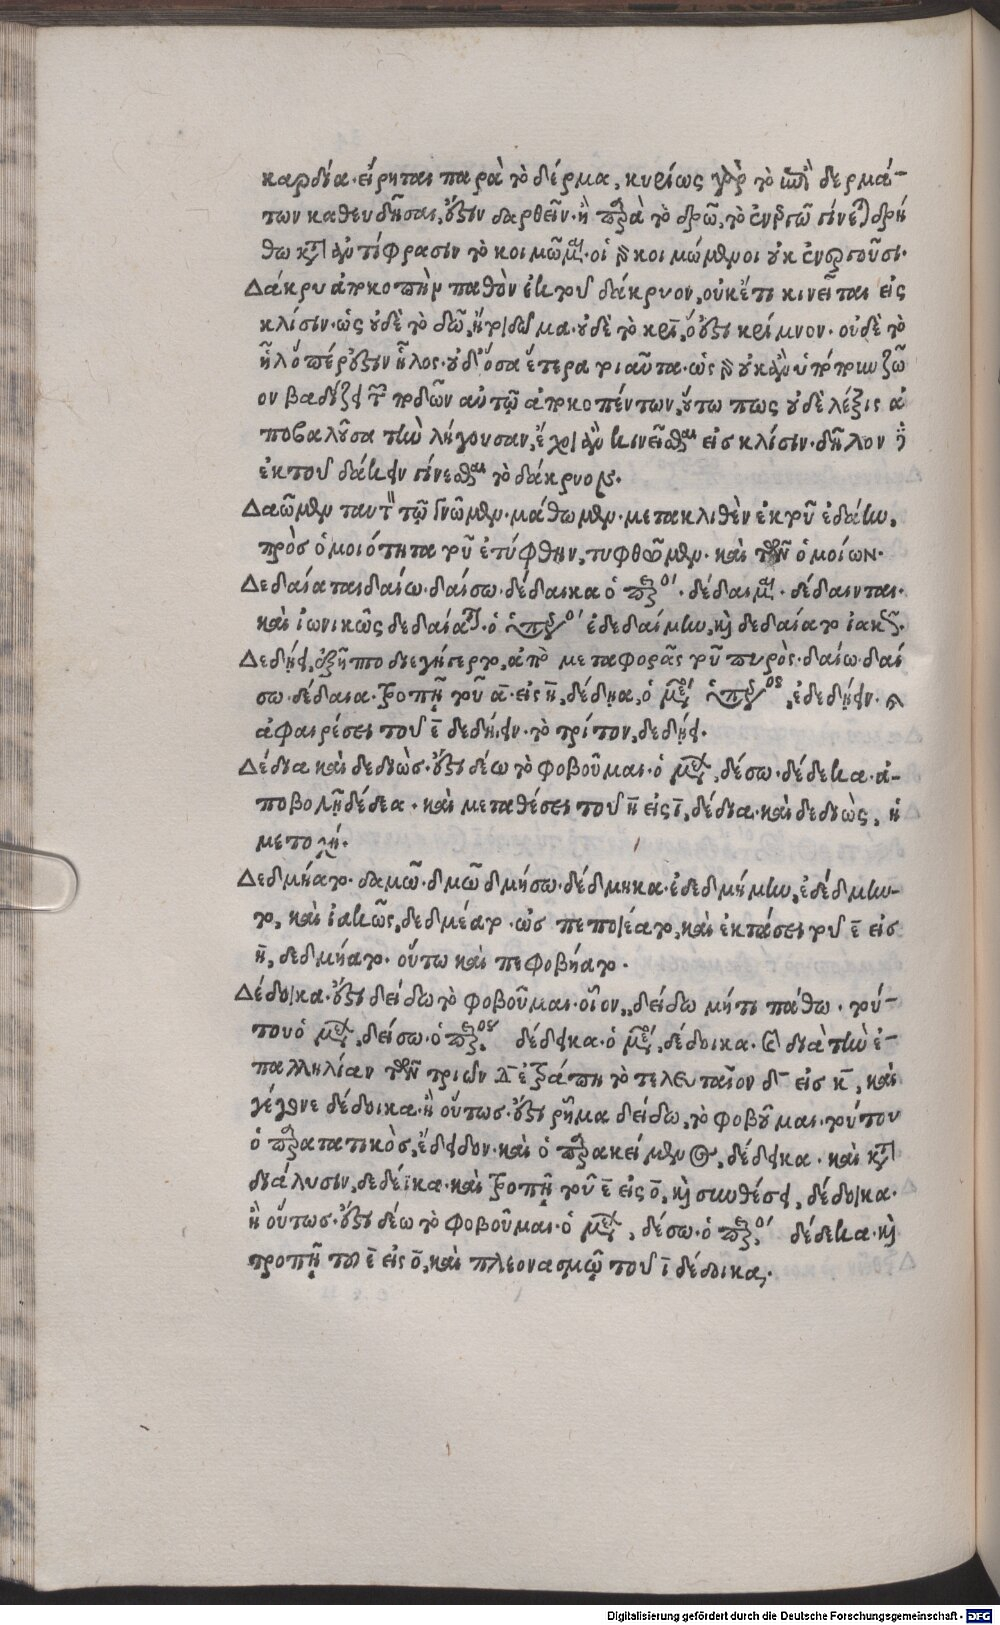 καρδία. εἴρηται παρὰ τὸ δέρμα, κυρίως γὰρ τὸ ἐπὶ δερμά-
των καθευδῆσαι, ἔστιν δαρθεῖν. ἢ παρὰ τὸ δρῶ, τὸ ἐνεργῶ γίνεται δρή
θω κατὰ ἀντίφρασιν τὸ κοιμῶμαι. οἱ γὰρ κοιμώμενοι οὐκ ἐνεργοῦσι.
Δάκρυ ἀποκοπὴν παθὸν ἐκ τοῦ δάκρυον, οὐκέτι κινεῖται εἰς
κλίσιν. ὡς οὐδὲ τὸ δῶ, ἤτοι δῶμα. οὐδὲ τὸ κρῖ, ὅ ἐστι κρίμνον. οὐδὲ τὸ
ἧλ ὅπέρ ἐστιν ἧλος. οὐδ' ὅσα ἕτερα τοιαῦτα. ὡς γὰρ οὐκ ἂν ὑπό τι ζῶ
ον βαδίζει τῶν ποδῶν αὐτῷ ἀποκοπέντων, οὕτω πως οὐδὲ λέξις ἀ
ποβαλοῦσα τὴν λήγουσαν, ἔχοι ἂν κινεῖσθαι εἰς κλίσιν. δῆλον ὅτι
ἐκ τοῦ δάκειν γίνεσθαι τὸ δάκρυον.
Δαῶμεν ταυτὶ τῷ γνῶμεν. μάθωμεν. μετακλιθὲν ἐκ τοῦ ἐδάην,
πρὸς ὁμοιότητα τοῦ ἐτύφθην, τυφθῶμεν. καὶ τῶν ὁμοίων.
Δεδαίαται δαίω. δαίσω. δέδαικα ὁ παθητικός. δέδαιμαι. δέδαινται.
καὶ ἰωνικῶς δεδαίαται. ὁ ὑπερσυντέλικος ἐδεδαίμην, καὶ δεδαίατο ἰακῶς.
Δεδῄει, ἐξῆπτο διεγήγερτο, ἀπὸ μεταφορᾶς τοῦ πυρὸς. δαίω. δαί
σω. δέδαια. τροπῇ τοῦ α εἰς η, δέδῃα, ὁ μέσος ὑπερσυντέλικος, ἐδεδῄειν. καὶ
ἀφαιρέσει τοῦ ε δεδῄειν. τὸ τρίτον, δεδῄει.
Δέδια καὶ δεδιὼς. ἔστι δέω τὸ φοβοῦμαι. ὁ μέλλων, δέσω. δέδεκα. ἀ-
ποβολῇ δέδεα. καὶ μεταθέσει τοῦ ε εἰς ι, δέδια. καὶ δεδιὼς, ἡ
μετοχή.
Δεδμήατο. δαμῶ. δμῶ δμήσω. δέδμηκα. ἐδεδμήμην, ἐδέδμην-
το, καὶ ἰακῶς, δεδμέατο. ὡς πεποιέατο, καὶ ἐκτάσει τοῦ ε εἰς
η, δεδμήατο. οὕτω καὶ πεφοβήατο.
Δέδοικα. ἔστι δείδω τὸ φοβοῦμαι. οἷον, δείδω μήτι πάθω. τού-
του ὁ μέλλων, δείσω. ὁ παρακείμενος δέδεικα. ὁ μέσος, δέδοικα. καὶ διὰ τὴν ἐ-
παλληλίαν τῶν τριῶν δ ἐτράπη τὸ τελευταῖον δ εἰς κ, καὶ
γέγονε δέδοικα. ἢ οὕτως. ἔστι ῥῆμα δείδω, τὸ φοβοῦμαι. τούτου
ὁ παρατατικὸς, ἔδειδον. καὶ ὁ παρακείμενος, δέδεικα. καὶ κατὰ
διάλυσιν, δεδέϊκα. καὶ τροπῇ τοῦ ε εἰς ο, καὶ συνθέσει, δέδοικα.
ἢ οὕτως. ἔστι δέω τὸ φοβοῦμαι. ὁ μέλλων, δέσω. ὁ παρακείμενος δέδεκα. καὶ
τροπῇ τοῦ ε εἰς ο, καὶ πλεονασμῷ τοῦ ι δέδοικα.
Digitalisierung gefördert durch die Deutsche Forschungsgemeinschaft - DFG